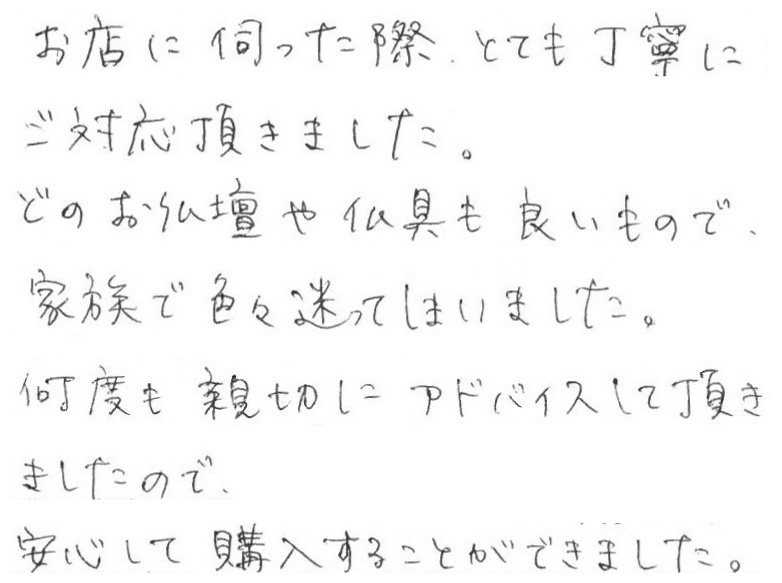 お店に伺った際、とても丁寧に
ご対応頂きました。
どのお仏壇や仏具も良いもので、
家族で色々迷ってしまいました。
何度も親切にアドバイスして頂き
ましたので、
安心して購入することができました。